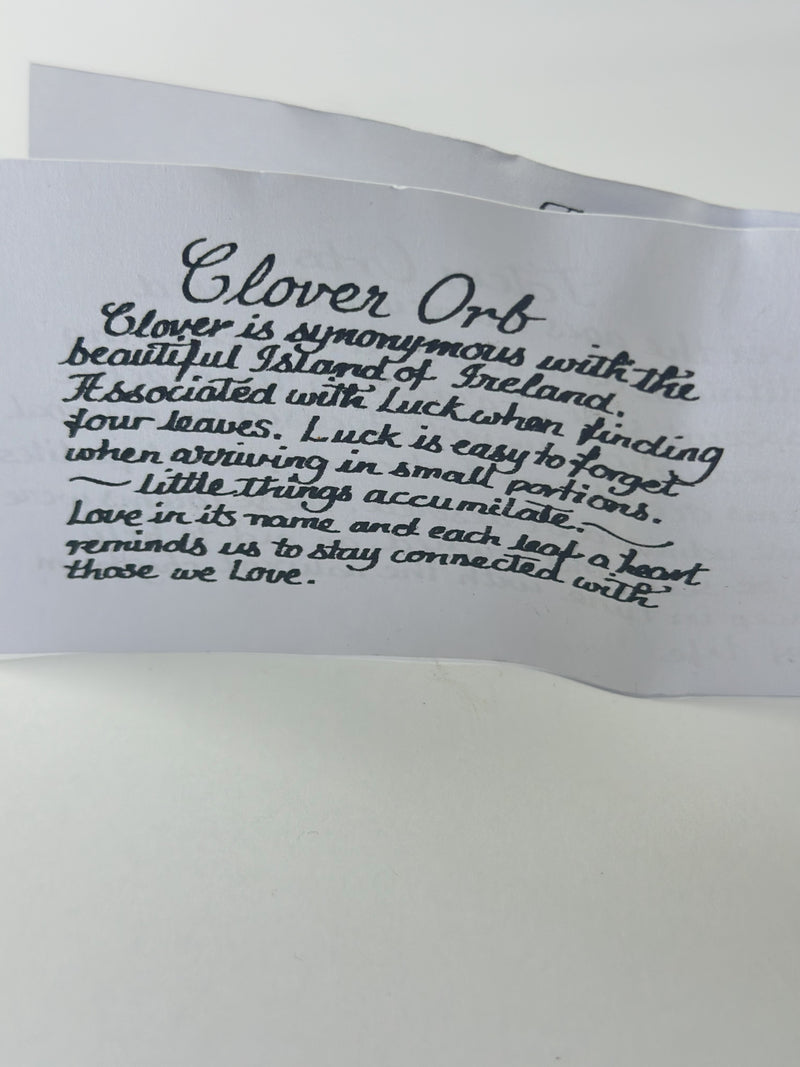 Clover Orb
Clover is synonymous with the
beautiful Island of Ireland.
Associated with Luck when finding
four leaves. Luck is easy to forget
when arriving in small portions.
~ little things accumilate. ~
Love in its name and each leaf a heart
reminds us to stay connected with
those we Love.